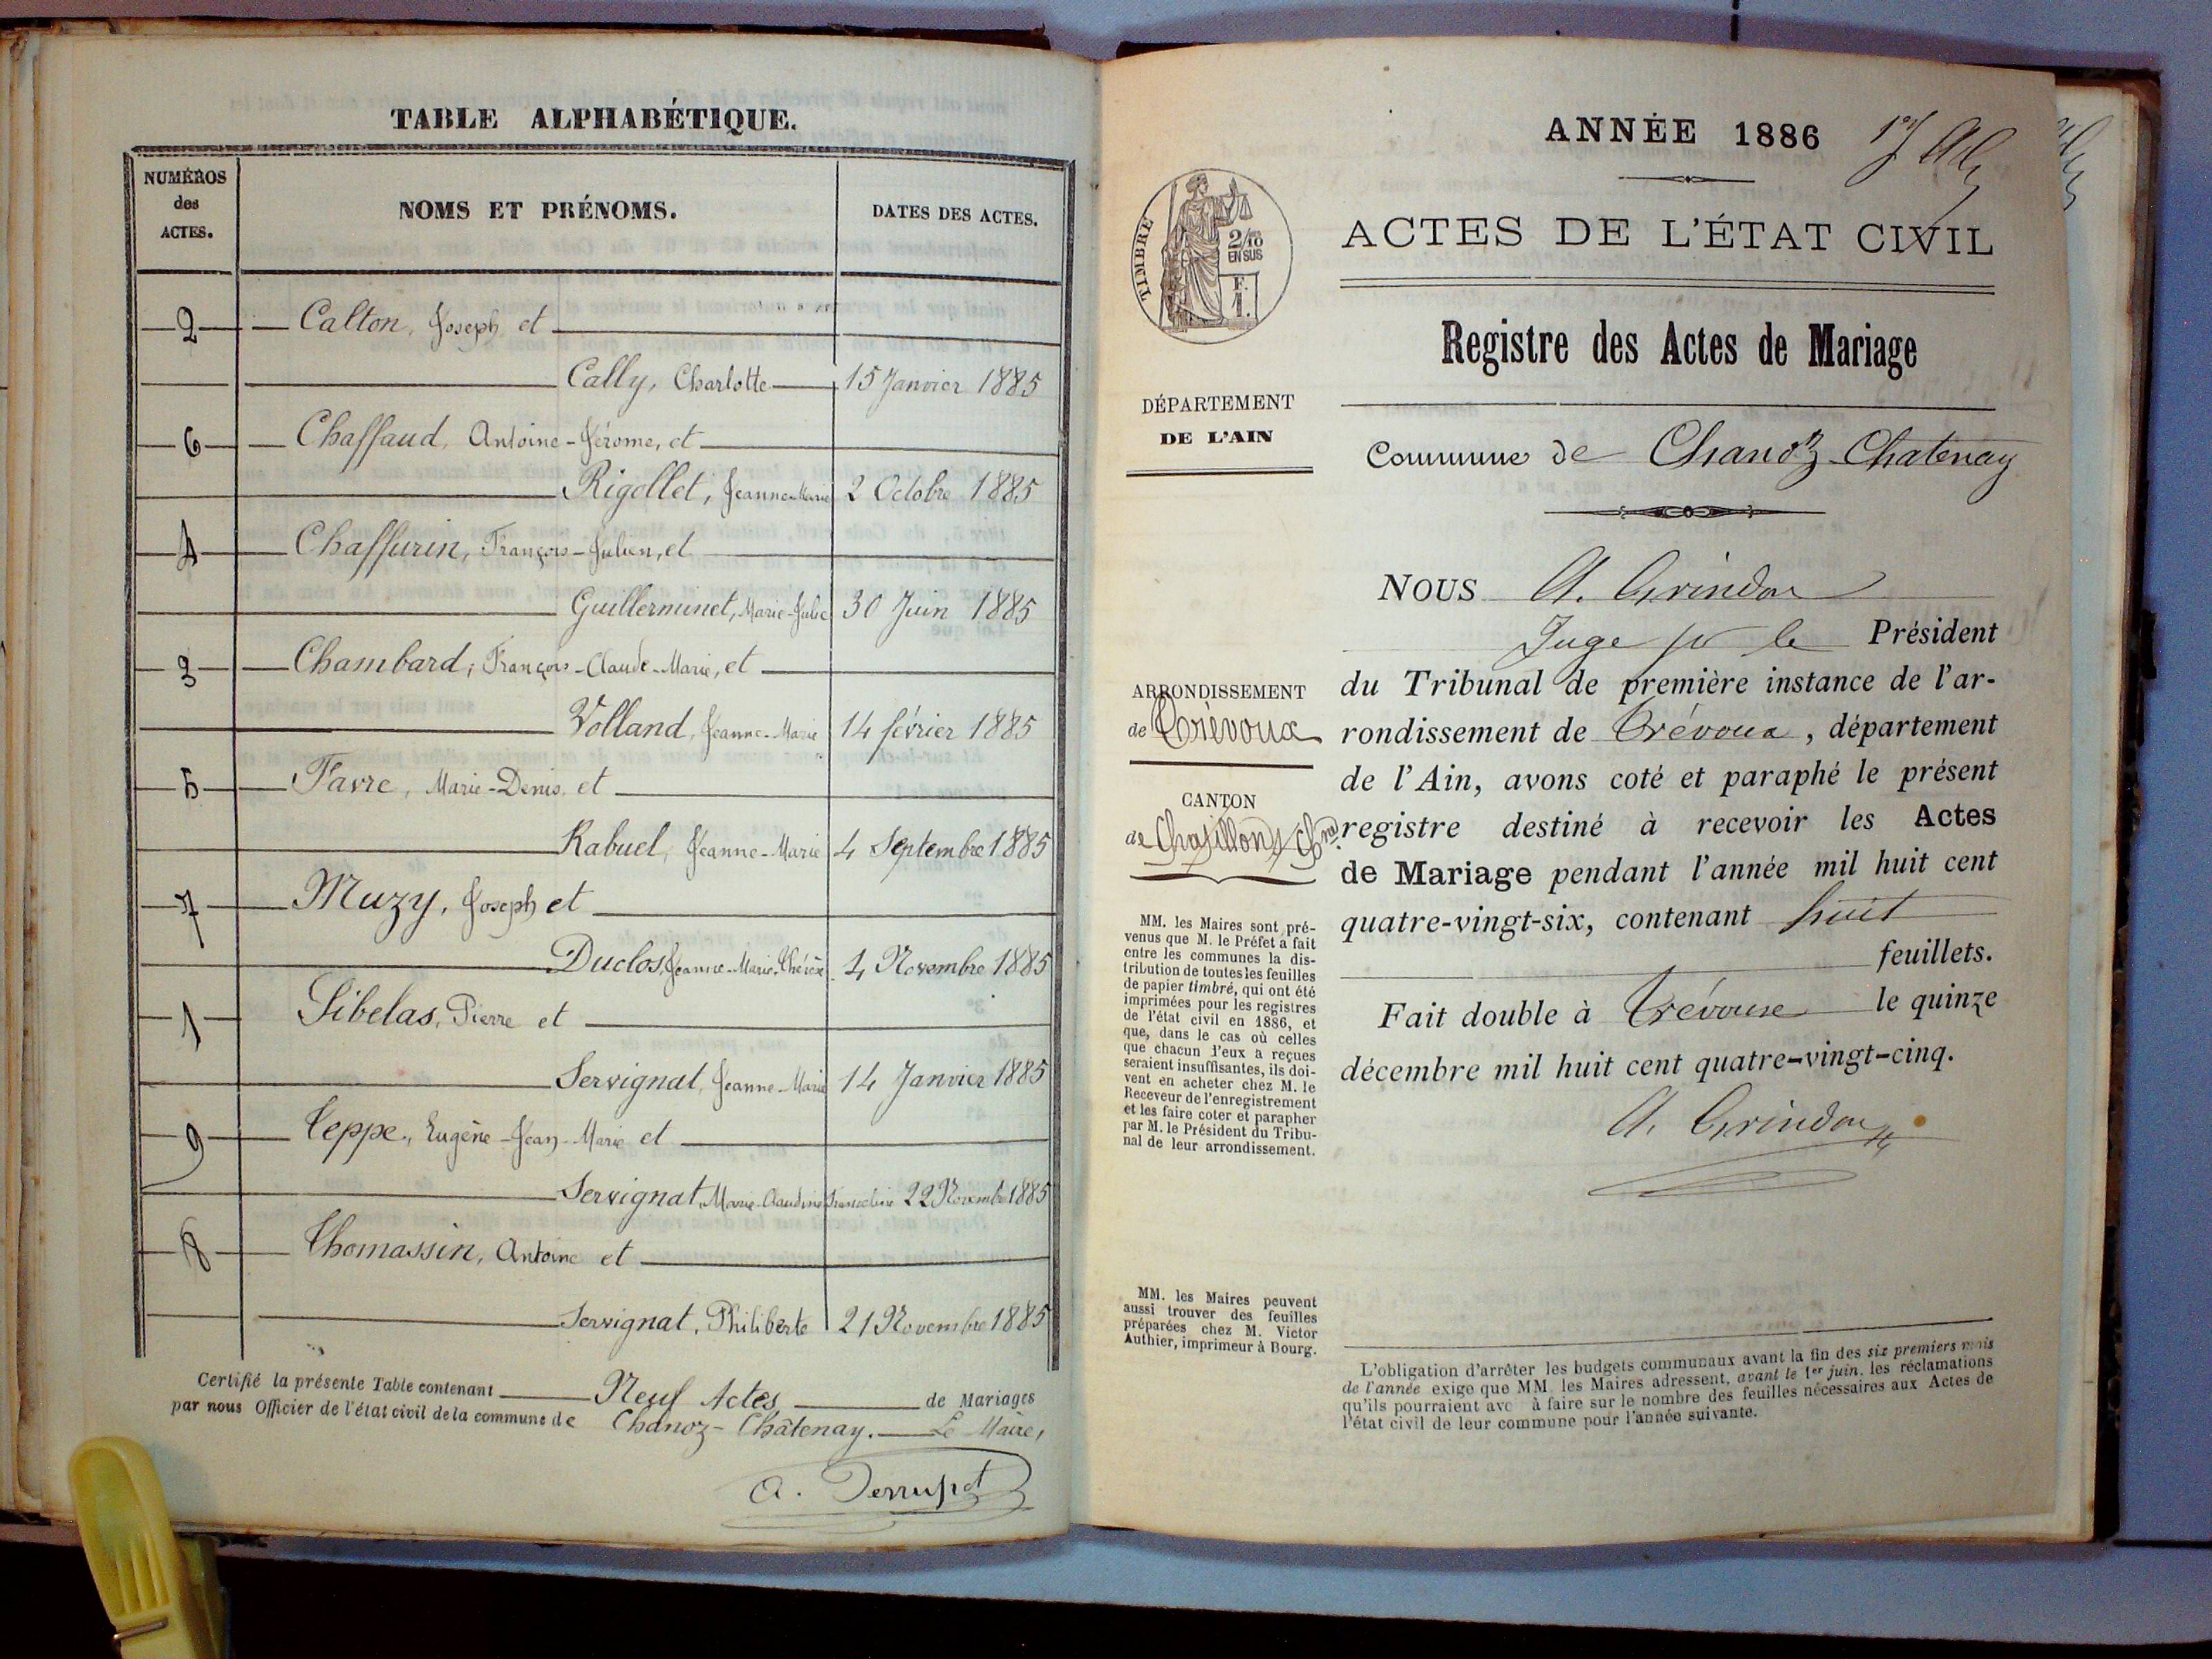 TABLE ALPHABÉTIQUE.
NUMÉROS
des
ACTES.
NOMS ET PRÉNOMS.
DATES DES ACTES.
2 Calton, Joseph et
Cally, Charlotte 15 Janvier 1885
6 Chaffaud, Antoine-Jérome, et
Rigollet, Jeanne-Marie 2 Octobre 1885
4 Chaffurin, François-Julien, et
Guillerminet, Marie-Julie 30 Juin 1885
3 Chambard, François-Claude-Marie, et
Volland, Jeanne-Marie 14 février 1885
5 Favre, Marie-Denis et
Rabuel, Jeanne-Marie 4 Septembre 1885
7 Muzy, Joseph et
Duclos, Jeanne-Marie-Thérèse 4 Novembre 1885
1 Sibelas, Pierre et
Servignat, Jeanne-Marie 14 Janvier 1885
9 Teppe, Eugène-Jean-Marie et
Servignat, Marie-Claudine 22 Novembre 1885
8 Thomassin, Antoine et
Servignat, Philiberte 21 Novembre 1885
Certifié la présente Table contenant Neuf Actes de Mariages
par nous Officier de l'état civil de la commune de Chanoz-Châtenay. Le Maire,
ANNÉE 1886
TIMBRE
2/10
EN SUS
F.
1.
ACTES DE L'ÉTAT CIVIL
Registre des Actes de Mariage
DÉPARTEMENT
DE L'AIN
Commune de Chanoz-Chatenay
ARRONDISSEMENT
de Trévoux
CANTON
de Chatillon s/ Chne
MM. les Maires sont pré-
venus que M. le Préfet a fait
entre les communes la dis-
tribution de toutes les feuilles
de papier timbré, qui ont été
imprimées pour les registres
de l'état civil en 1886, et
que, dans le cas où celles
que chacun d'eux a reçues
seraient insuffisantes, ils doi-
vent en acheter chez M. le
Receveur de l'enregistrement
et les faire coter et parapher
par M. le Président du Tribu-
nal de leur arrondissement.
MM. les Maires peuvent
aussi trouver des feuilles
préparées chez M. Victor
Authier, imprimeur à Bourg.
NOUS A. Grindon
Juge pr le Président
du Tribunal de première instance de l'ar-
rondissement de Trévoux, département
de l'Ain, avons coté et paraphé le présent
registre destiné à recevoir les Actes
de Mariage pendant l'année mil huit cent
quatre-vingt-six, contenant huit
feuillets.
Fait double à Trévoux le quinze
décembre mil huit cent quatre-vingt-cinq.
A. Grindon
L'obligation d'arrêter les budgets communaux avant la fin des six premiers mois
de l'année exige que MM. les Maires adressent, avant le 1er juin, les réclamations
qu'ils pourraient avo à faire sur le nombre des feuilles nécessaires aux Actes de
l'état civil de leur commune pour l'année suivante.